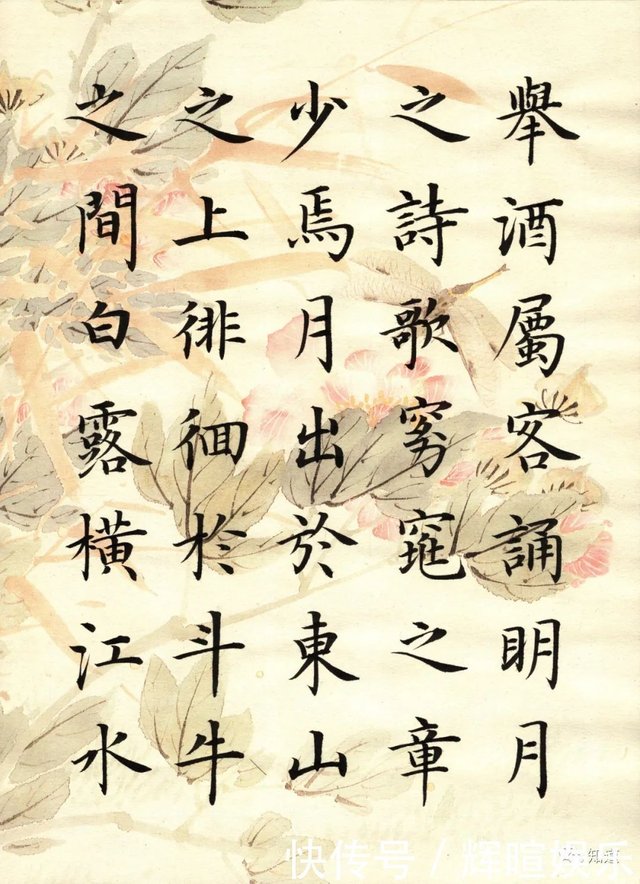 舉酒屬客誦明月
之詩歌窈窕之章
少焉月出於東山
之上徘徊於斗牛
之間白露橫江水
快传号 / 辉暄娱乐